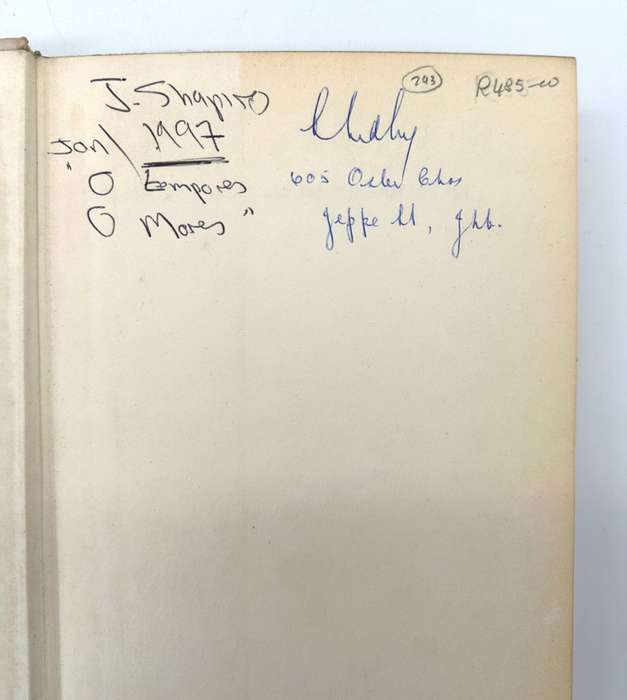 J. Shapiro
Jan / 1997
"O tempores
O Mores"
243
R485-00
605 Osler Chas
Jeppe St, Jhb.